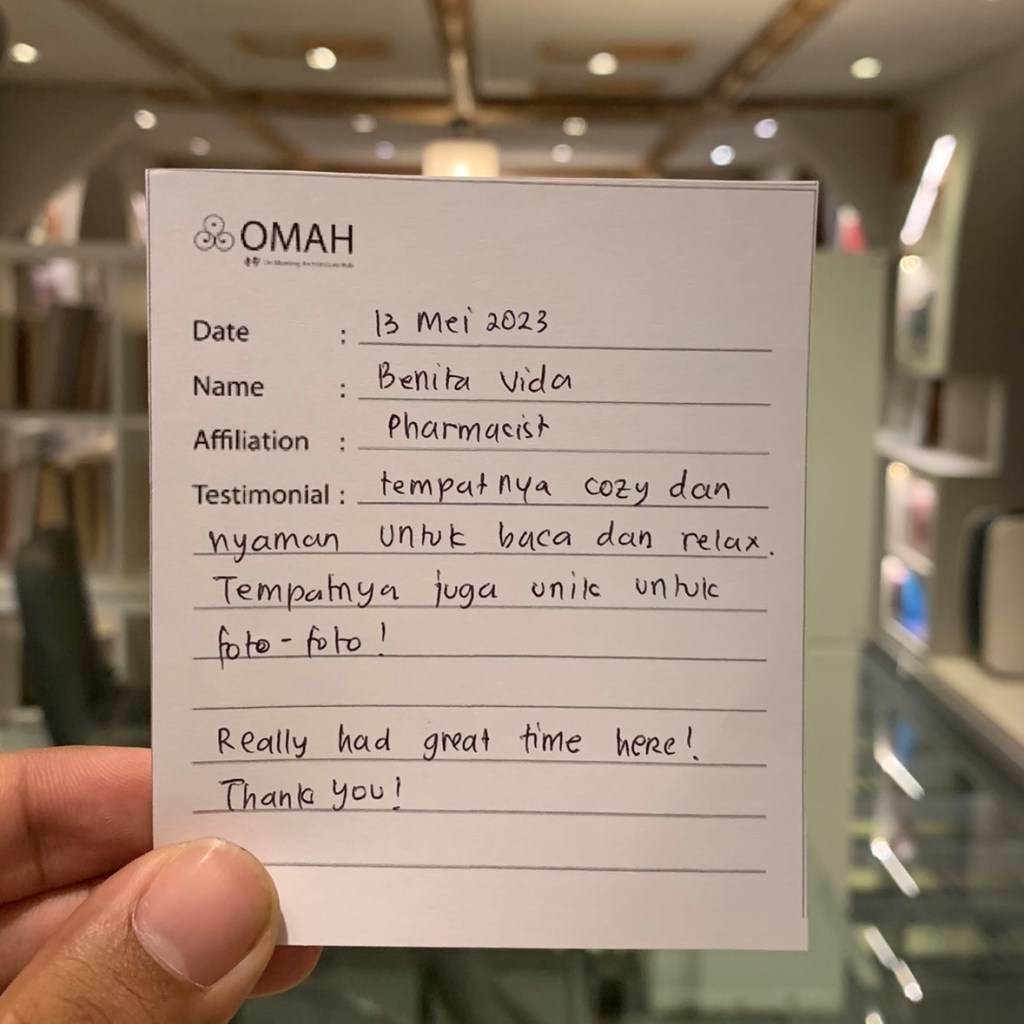 OMAH
Date : 13 Mei 2023
Name : Benita Vida
Affiliation : Pharmacist
Testimonial : tempatnya cozy dan
nyaman untuk baca dan relax.
Tempatnya juga unik untuk
foto-foto!
Really had great time here!
Thank you!